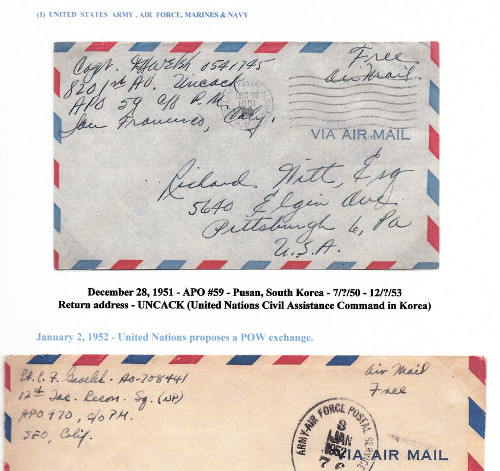 (1) UNITED STATES ARMY, AIR FORCE, MARINES & NAVY
Capt. Welsh 0541745
8201st AU, Uncack
APO 59 c/o P.M.
San Francisco, Caly.
Free
Air Mail
1951
VIA AIR MAIL
Richard Witt, Esq
5640 Elgin Ave
Pittsburgh 6, Pa
U.S.A.
December 28, 1951 - APO #59 - Pusan, South Korea - 7/?/50 - 12/?/53
Return address - UNCACK (United Nations Civil Assistance Command in Korea)
January 2, 1952 - United Nations proposes a POW exchange.
Lt. C. F. AO-708441
12th Tac. Recon. Sq. (NP)
APO 970, c/o P.M.
SFO, Calif.
Air Mail
Free
ARMY-AIR FORCE POSTAL SERVICE
8
JAN
1952
VIA AIR MAIL